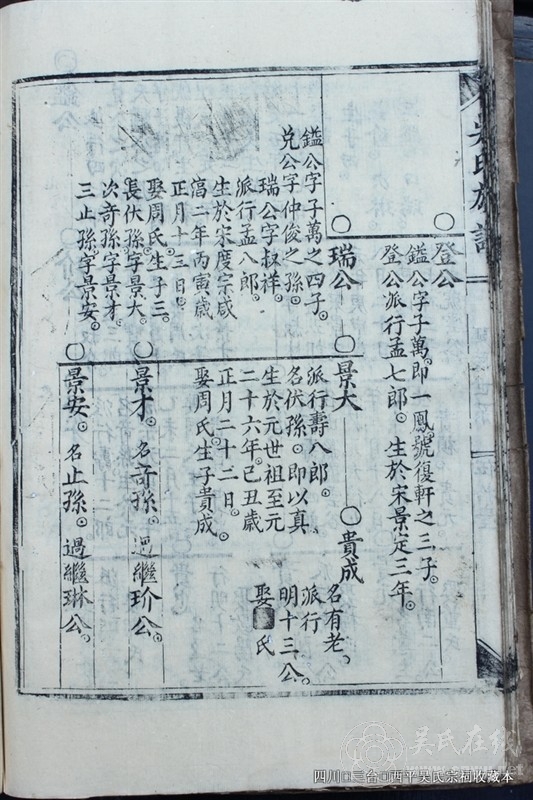 吳氏族譜
登公
鑑公字子萬即一鳳號復軒之三子。
登公派行孟七郎。生於宋景定三年。
鑑公字子萬之四子。
兌公字仲俊之孫。
瑞公字叔祥。
派行孟八郎。
生於宋度宗咸
淳二年丙寅歲
正月十三日。
娶周氏生子三。
長伏孫字景大。
次奇孫字景才。
三止孫字景安。
瑞公
景大
派行壽八郎。
名伏孫。即以真
生於元世祖至元
二十六年。己丑歲
正月二十二日。
娶周氏生子貴成。
貴成
名有老。
派行
明十三公。
娶 氏
景才。名奇孫。過繼玠公。
景安。名止孫。過繼琳公。
吴氏在线
四川□三台□西平吴氏宗祠收藏本